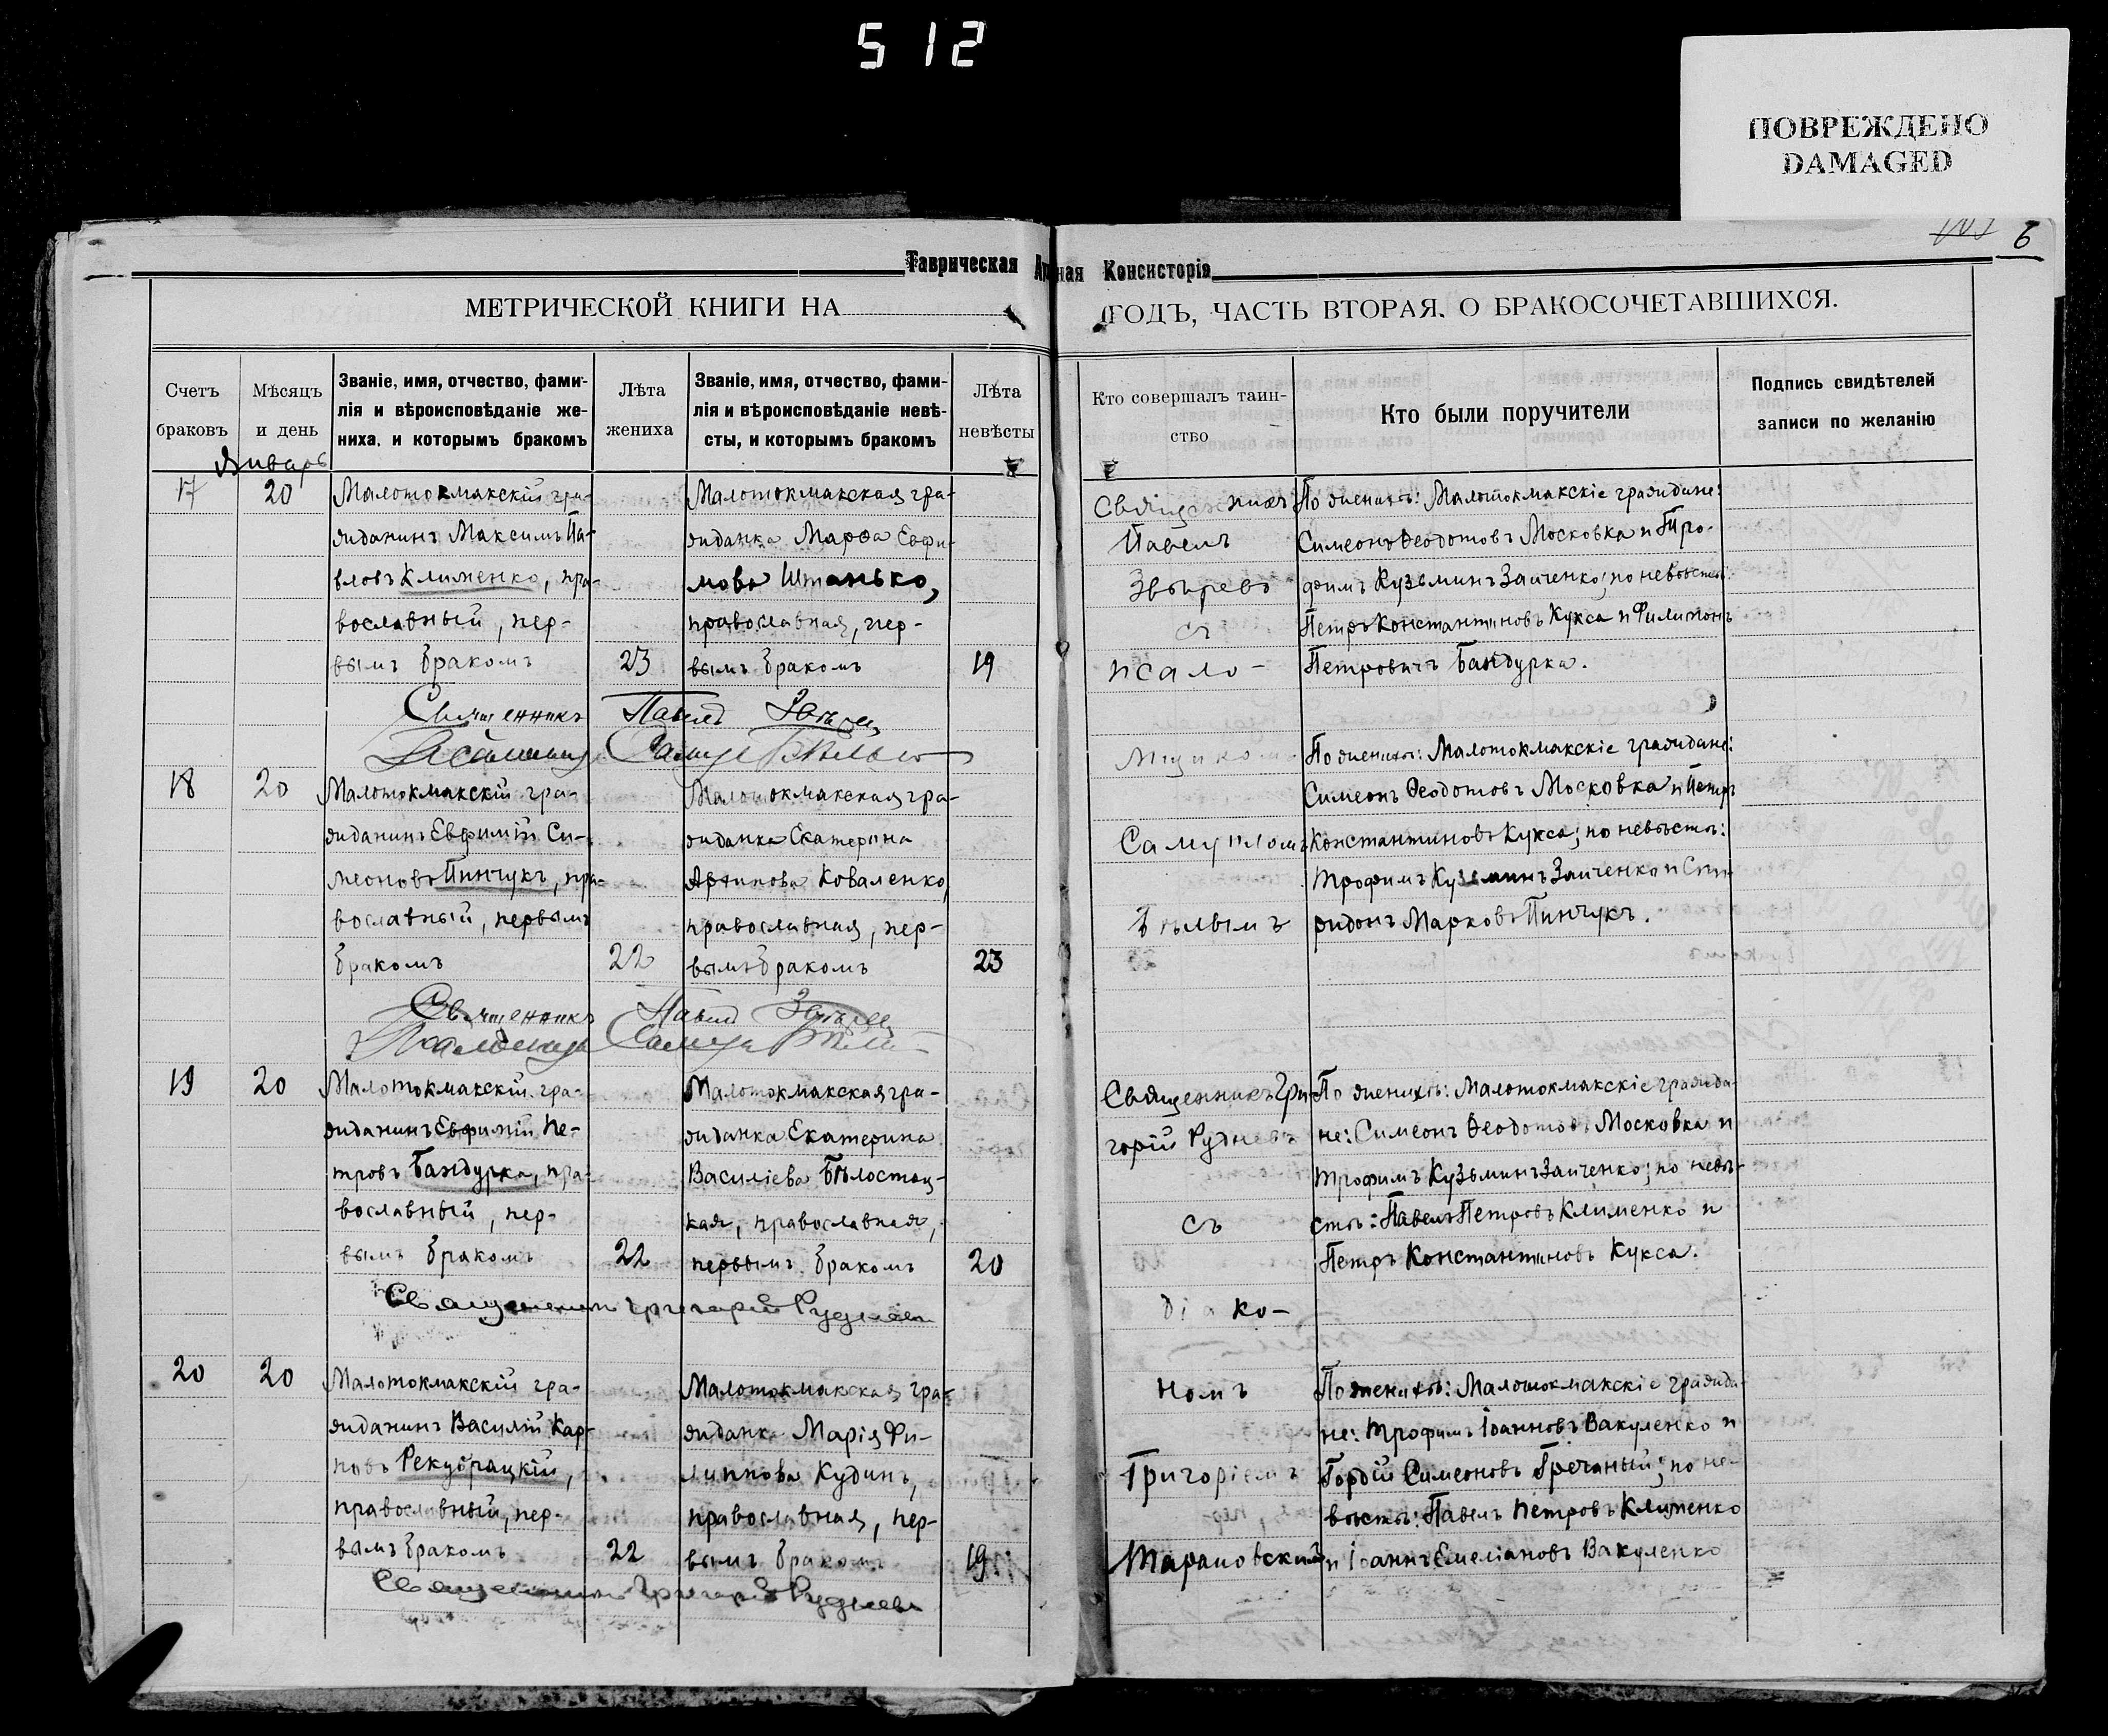 512
ПОВРЕЖДЕНО
DAMAGED
6
Таврическая
ная Консисторія
МЕТРИЧЕСКОЙ КНИГИ НА
ГОДЪ, ЧАСТЬ ВТОРАЯ. О БРАКОСОЧЕТАВШИХСЯ.
Счетъ
браковъ
Мѣсяцъ
и день
Званіе, имя, отчество, фами-
лія и вѣроисповѣданіе же-
ниха, и которымъ бракомъ
Лѣта
жениха
Званіе, имя, отчество, фами-
лія и вѣроисповѣданіе невѣ-
сты, и которымъ бракомъ
Лѣта
невѣсты
Кто совершалъ таин-
ство
Кто были поручители
Подпись свидѣтелей
записи по желанію
Январь
17
20
Малотокмакскій гра-
жданинъ Максимъ Па-
вловъ Клименко, пра-
вославный, пер-
вымъ бракомъ
23
Малотокмакская гра-
жданка Марѳа Евфи-
мова Штанько,
православная, пер-
вымъ бракомъ
19
Священникъ
Павелъ
Звѣревъ
съ
псало-
По женихѣ: Малотокмакскіе граждане:
Симеонъ Ѳеодотовъ Московка и Тро-
фимъ Кузьминъ Заиченко; по невѣстѣ:
Петръ Константиновъ Кукса и Филимонъ
Петровичъ Бандурка.
Священникъ Павелъ Звѣревъ
18
20
Малотокмакскій гра-
жданинъ Евфимій Си-
меоновъ Пинчукъ, пра-
вославный, первымъ
бракомъ
22
Малотокмакская гра-
жданка Екатерина
Архипова Коваленко,
православная, пер-
вымъ бракомъ
23
мщикомъ
Самуиломъ
Бѣлымъ
По женихѣ: Малотокмакскіе граждане:
Симеонъ Ѳеодотовъ Московка и Петръ
Константиновъ Кукса; по невѣстѣ:
Трофимъ Кузьминъ Заиченко и Спи-
ридонъ Марковъ Пинчукъ.
Священникъ Павелъ Звѣревъ
19
20
Малотокмакскій гра-
жданинъ Евфимій Пе-
тровъ Бандурка, пра-
вославный, пер-
вымъ бракомъ
22
Малотокмакская гра-
жданка Екатерина
Василіева Бѣлостоц-
кая, православная,
первымъ бракомъ
20
Священникъ Гри-
горій Рудневъ
съ
діако-
По женихѣ: Малотокмакскіе гражда-
не: Симеонъ Ѳеодотовъ Московка и
Трофимъ Кузьминъ Заиченко; по невѣ-
стѣ: Павелъ Петровъ Клименко и
Петръ Константиновъ Кукса.
Священникъ Григорій Рудневъ
20
20
Малотокмакскій гра-
жданинъ Василій Кар-
повъ Рекубрацкій,
православный, пер-
вымъ бракомъ
22
Малотокмакская гра-
жданка Марія Фи-
липпова Кудинъ,
православная, пер-
вымъ бракомъ
19
номъ
Григоріемъ
Тарановскимъ
По женихѣ: Малотокмакскіе гражда-
не: Трофимъ Іоанновъ Вакуленко и
Гордій Симеоновъ Гречаный; по не-
вѣстѣ: Павелъ Петровъ Клименко
и Іоаннъ Емеліановъ Вакуленко
Священникъ Григорій Рудневъ